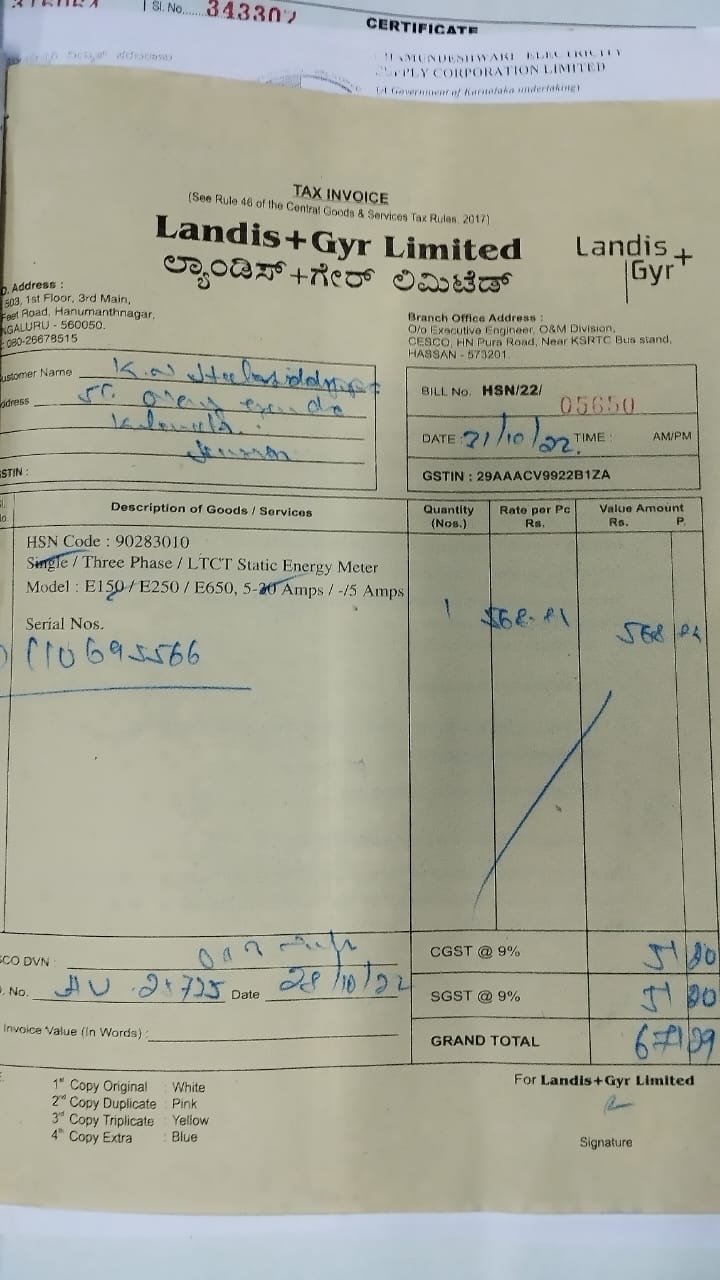 Sl. No.......343307
CERTIFICATE
PPLY CORPORATION LIMITED
(A Government of Karnataka undertaking)
TAX INVOICE
(See Rule 46 of the Central Goods & Services Tax Rules. 2017)
Landis+Gyr Limited
ಲ್ಯಾಂಡಿಸ್+ಗೇರ್ ಲಿಮಿಟೆಡ್
Landis+
Gyr
. Address :
503, 1st Floor, 3rd Main,
Feet Road, Hanumanthnagar,
NGALURU - 560050.
: 080-26678515
Branch Office Address :
O/o Executive Engineer, O&M Division,
CESCO, HN Pura Road, Near KSRTC Bus stand,
HASSAN - 573201.
ustomer Name
ddress
STIN :
BILL No. HSN/22/ 05650
DATE : 31/10/22. TIME : AM/PM
GSTIN : 29AAACV9922B1ZA
Description of Goods / Services
Quantity (Nos.)
Rate per Pc Rs.
Value Amount Rs. P.
HSN Code : 90283010
Single / Three Phase / LTCT Static Energy Meter
Model : E150 / E250 / E650, 5-30 Amps / -/5 Amps
1 568-81 568 81
Serial Nos.
110695566
SCO DVN
CGST @ 9% 51 20
. No. 28725 Date 28/10/22
SGST @ 9% 51 20
Invoice Value (In Words) :
GRAND TOTAL 671 29
1st Copy Original : White
2nd Copy Duplicate : Pink
3rd Copy Triplicate : Yellow
4th Copy Extra : Blue
For Landis+Gyr Limited
Signature